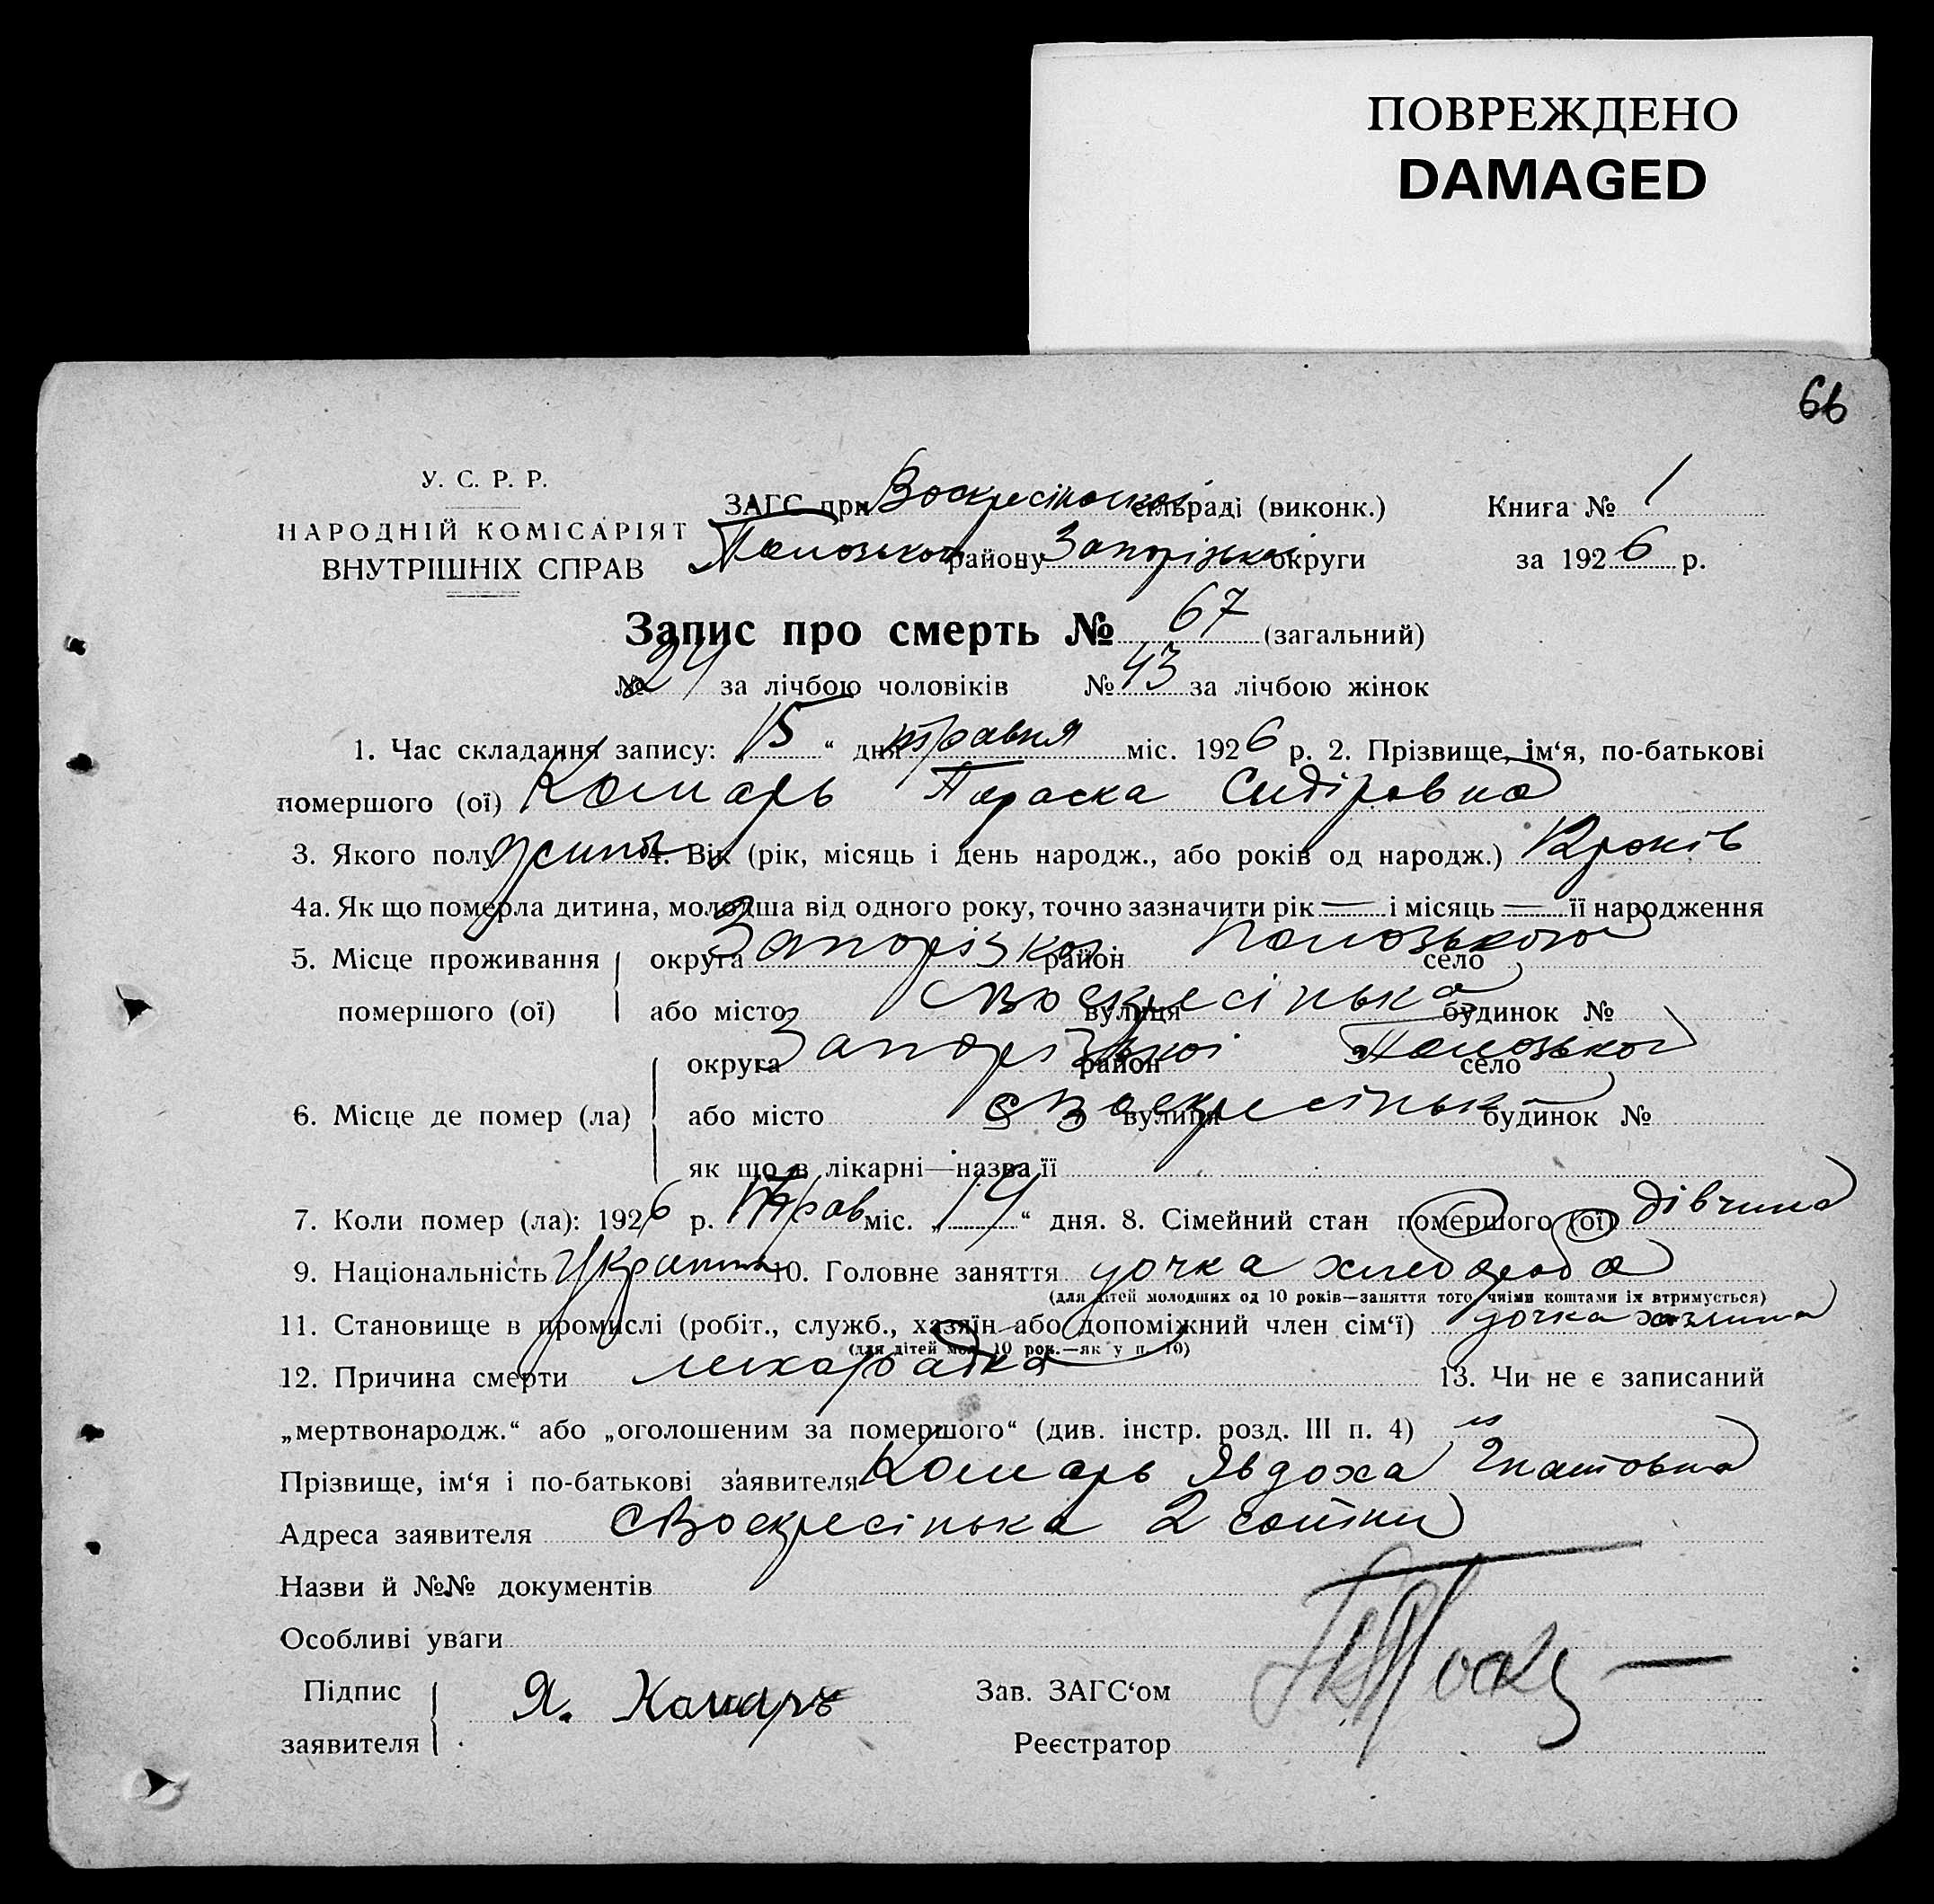 ПОВРЕЖДЕНО
DAMAGED
66
У. С. Р. Р.
НАРОДНІЙ КОМІСАРІЯТ
ВНУТРІШНІХ СПРАВ
ЗАГС при Воскресінській сільраді (виконк.) Книга № 1
Пологського району Запорізької округи за 1926 р.
Запис про смерть № 67 (загальний)
№ 24 за лічбою чоловіків № 43 за лічбою жінок
1. Час складання запису: „15“ дня травня міс. 1926 р. 2. Прізвище, ім‘я, по-батькові
помершого (ої) Комарь Параска Сидіровна
3. Якого полу 4. Вік (рік, місяць і день народж., або років од народж.) 12 років
4а. Як що померла дитина, молодша від одного року, точно зазначити рік — і місяць — її народження
5. Місце проживання округа Запорізкої район село
помершого (ої) або місто с Воскресінька вулиця будинок №
округа Запорізької район село
6. Місце де помер (ла) або місто с Воскресінька вулиця будинок №
як що в лікарні—назва її
7. Коли помер (ла): 1926 р. Трав міс. „14“ дня. 8. Сімейний стан помершого (ої) дівчина
9. Національність 10. Головне заняття дочка хлебороба
(для дітей молодших од 10 років—заняття того, чиїми коштами їх втримується)
11. Становище в промислі (робіт., служб., хазяїн або допоміжний член сім‘ї) дочка хазяина
(для дітей мол. 10 рок.—як у п. 10)
12. Причина смерти 13. Чи не є записаний
„мертвонародж.“ або „оголошеним за помершого“ (див. інстр. розд. III п. 4)
Прізвище, ім‘я і по-батькові заявителя Комарь Явдоха Гнатовна
Адреса заявителя с Воскресінька 2 сотни
Назви й №№ документів
Особливі уваги
Підпис Я. Комарь Зав. ЗАГС‘ом
заявителя Реєстратор